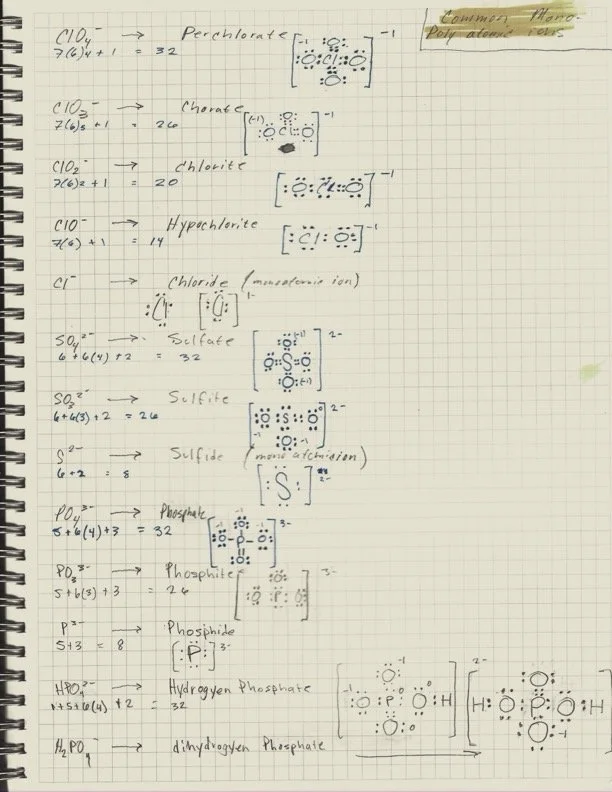 Common Mono-
Poly atomic ions
ClO₄⁻ → Perchlorate [:O:Cl:O:]⁻¹
7(6)4 + 1 = 32
ClO₃⁻ → Chorate [:O:Cl:O:]⁻¹
7(6)3 + 1 = 26
ClO₂⁻ → Chlorite [:O:Cl:O:]⁻¹
7(6)2 + 1 = 20
ClO⁻ → Hypochlorite [:Cl:O:]⁻¹
7(6) + 1 = 14
Cl⁻ → Chloride (monoatomic ion)
:Cl: [:Cl:]¹⁻
SO₄²⁻ → Sulfate
6 + 6(4) + 2 = 32
SO₃²⁻ → Sulfite
6+6(3) + 2 = 26
S²⁻ → Sulfide (mono atomic ion)
6+2 = 8 [:S:]²⁻
PO₄³⁻ → Phosphate
5+6(4)+3 = 32
PO₃³⁻ → Phosphite
5+6(3) + 3 = 26
P³⁻ → Phosphide
5+3 = 8 [:P:]³⁻
HPO₄²⁻ → Hydrogyen Phosphate
1+5+6(4) + 2 = 32
H₂PO₄⁻ → dihydrogyen Phosphate